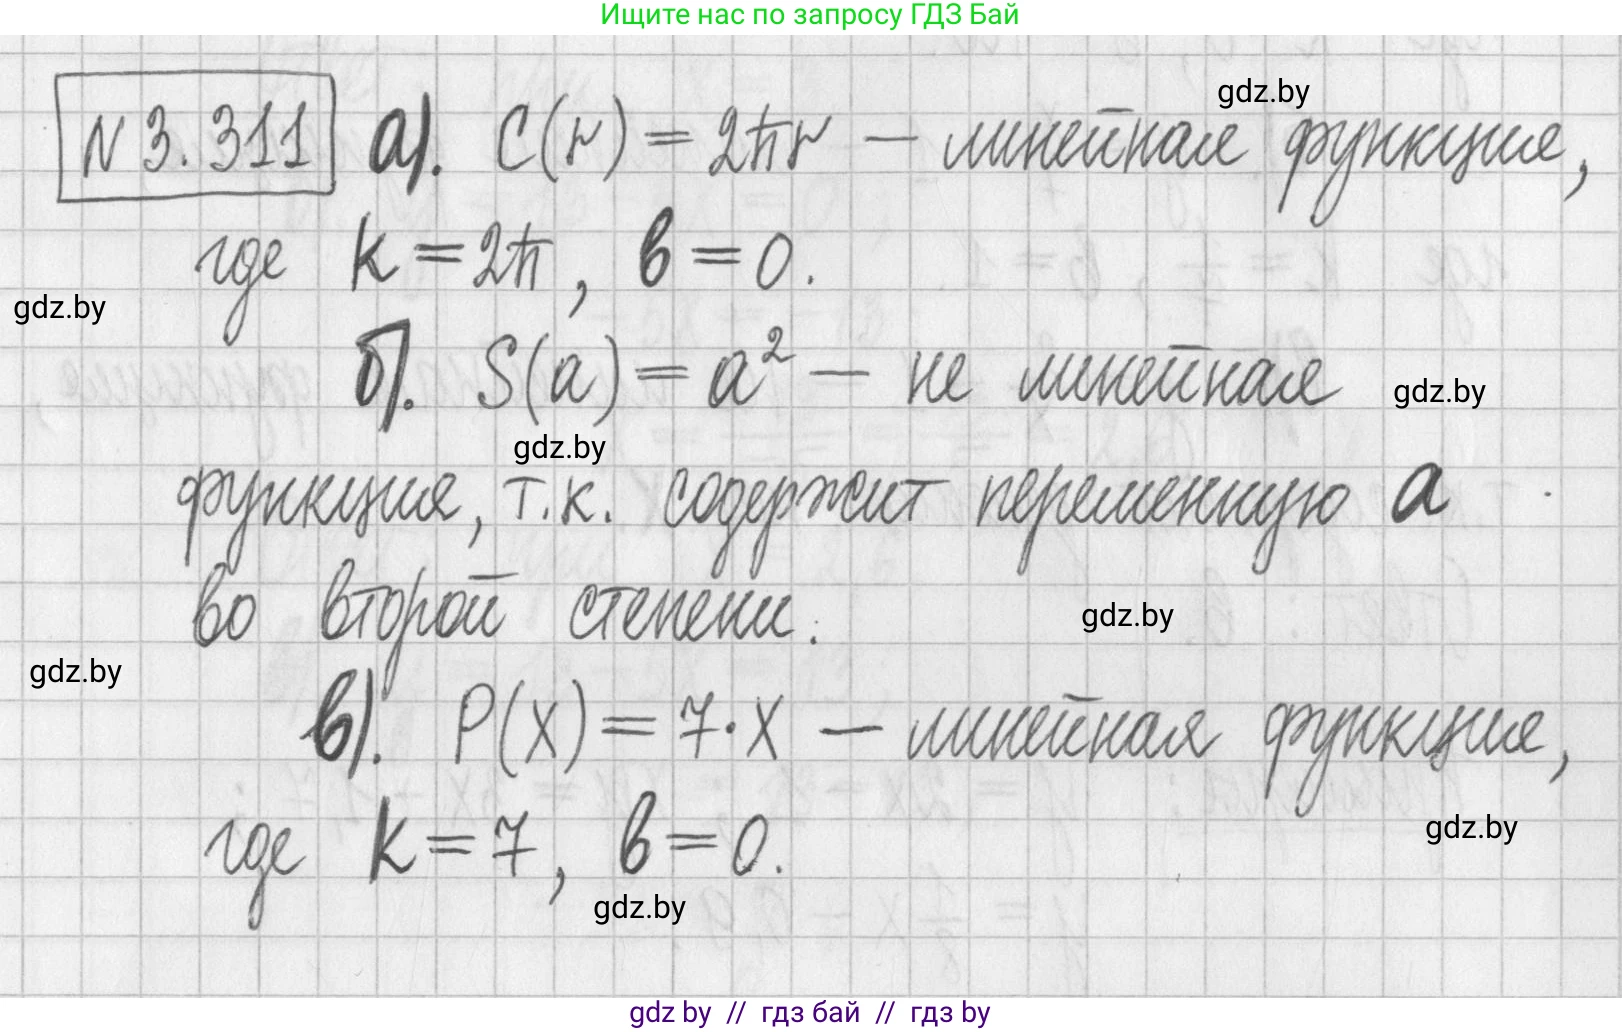 Ищите нас по запросу ГДЗ Бай
gdz.by
N 3.311 а). C(r) = 2πr – линейная функция,
где к = 2π, в = 0.
gdz.by
б). S(a) = a² – не линейная
gdz.by
gdz.by
функция, т.к. содержит переменную a
во второй степени.
gdz.by
gdz.by
в). P(x) = 7·x – линейная функция,
gdz.by
где к = 7, в = 0.
gdz.by
gdz by // гдз бай // гдз by